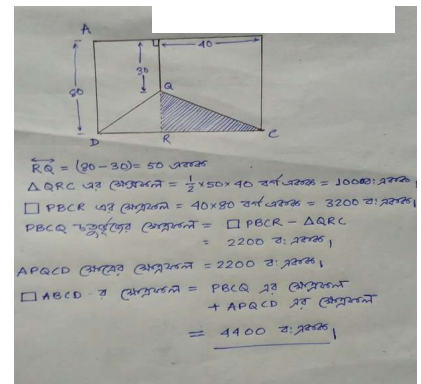 A
40
30
80
Q
D
R
C
RQ = (80 - 30) = 50 একক
△QRC এর ক্ষেত্রফল = 1/2 × 50 × 40 বর্গ একক = 1000 ব: একক,
□ PBCR এর ক্ষেত্রফল = 40 × 80 বর্গ একক = 3200 ব: একক,
PBCQ চতুর্ভুজের ক্ষেত্রফল = □ PBCR - △QRC
= 2200 ব: একক,
APQCD ক্ষেত্রের ক্ষেত্রফল = 2200 ব: একক,
□ ABCD-র ক্ষেত্রফল = PBCQ এর ক্ষেত্রফল
+ APQCD এর ক্ষেত্রফল
= 4400 ব: একক,